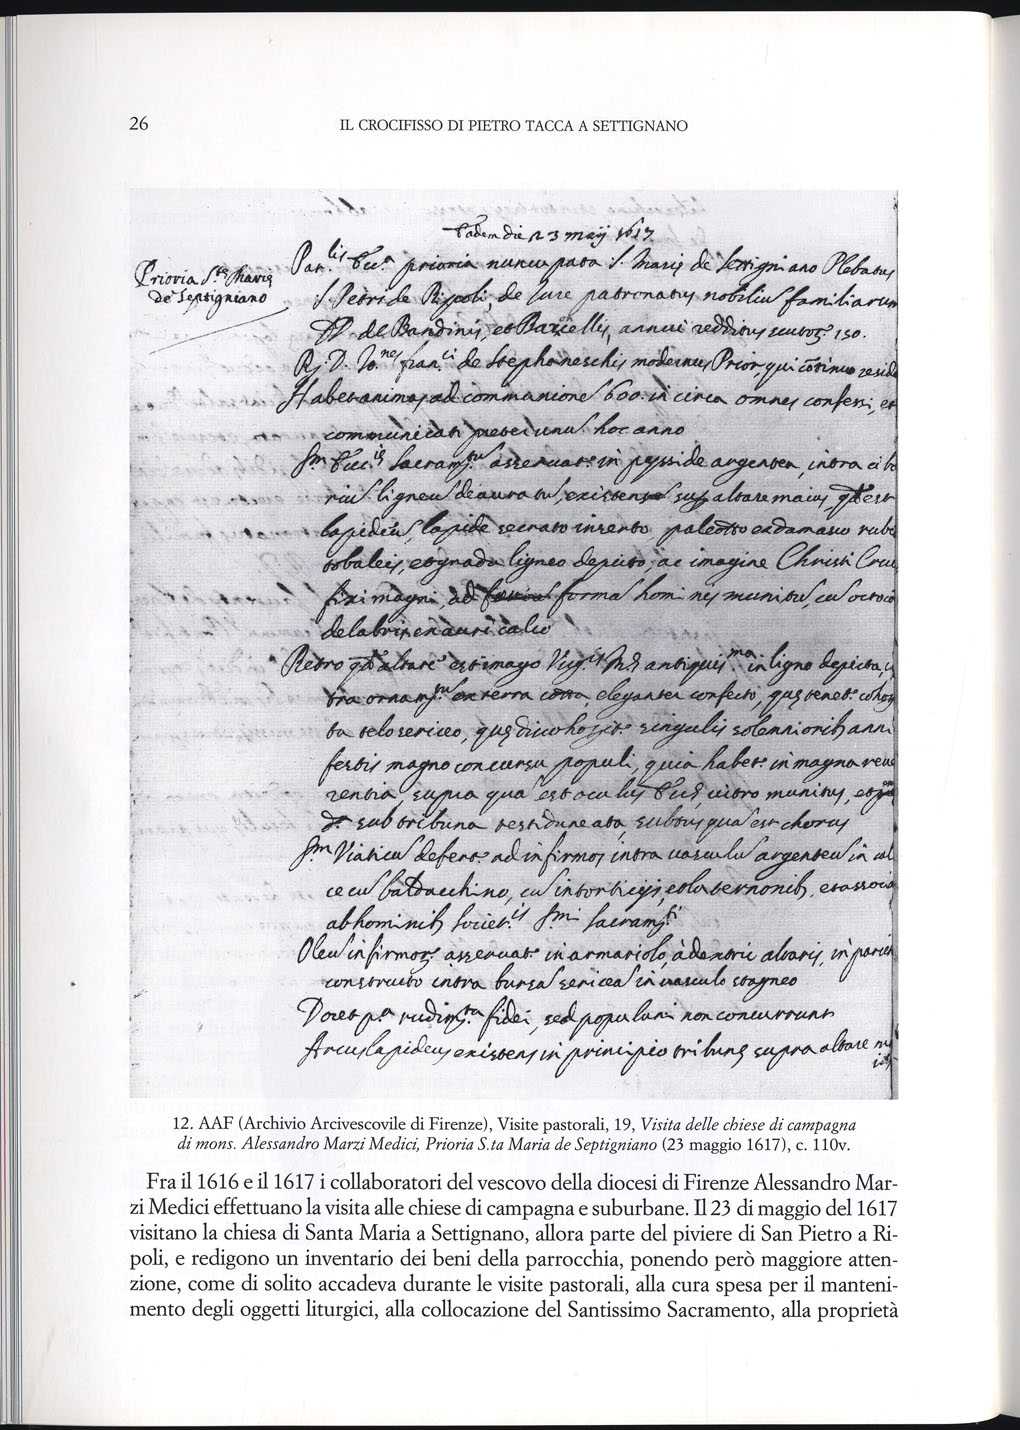 26
IL CROCIFISSO DI PIETRO TACCA A SETTIGNANO
Eadem die 23 maij 1617
Prioria S.te Marie
de Septigniano
Par.lis Ecc.a prioria nuncupata S. Marię de Settigniano Plebatus
S. Petri de Ripoli, de Jure patronatus nobiliu familiarum
de Bandinis, et Baroncellis, annui redditus scutor 150.
R. D. Jo.nes fran.ci de Stephaneschis modernus Prior, qui cōtinuo resid
Habet animas ad communione 600 in circa omnes confessi, et
communicati hoc anno
Sm Ecc.ię Sacram.tu asseruat in pysside argentea, intra cibo
riu ligneu deauratu, existens sup altare maius, qd est
lapideu, lapide secrato inserto, paleotto ex damasco rub
tobaleis, et gradu ligneo depicto, ac imagine Christi Cruc
fixi magni, ad forma hominis munitu, cu octo c
delabris ex auricalco
Retro qd altare est imago Virg.is antiquis.ma in ligno depicta, i
tra ornam.tu ex terra cocta eleganter confecto, quę tenet coho
ta telo sericeo, quę singulis solennioribs anni
festis magno concursu populi, quia habet in magna reue
rentia, supra qua est oculus vitro munitus, et
sub tribuna testduneata, subtus qua est chorus
Sm Viaticu defert ad infirmos intra vasculu argenteu in cal
ce cu baldacchino, cu intorticijs, et laternonibs, et associa
ab hominibs Societ.is S.mi Sacram.ti
Oleu infirmor asseruat in armariolo, à dextris altaris, in pariet
constructo intra bursa sericea in vasculo stagneo
Docet p.a rudim.ta fidei, sed populani non concurrunt
Arcus lapideus existens in principio tribunę supra altare m
12. AAF (Archivio Arcivescovile di Firenze), Visite pastorali, 19, Visita delle chiese di campagna
di mons. Alessandro Marzi Medici, Prioria S.ta Maria de Septigniano (23 maggio 1617), c. 110v.
Fra il 1616 e il 1617 i collaboratori del vescovo della diocesi di Firenze Alessandro Mar-
zi Medici effettuano la visita alle chiese di campagna e suburbane. Il 23 di maggio del 1617
visitano la chiesa di Santa Maria a Settignano, allora parte del piviere di San Pietro a Ri-
poli, e redigono un inventario dei beni della parrocchia, ponendo però maggiore atten-
zione, come di solito accadeva durante le visite pastorali, alla cura spesa per il manteni-
mento degli oggetti liturgici, alla collocazione del Santissimo Sacramento, alla proprietà